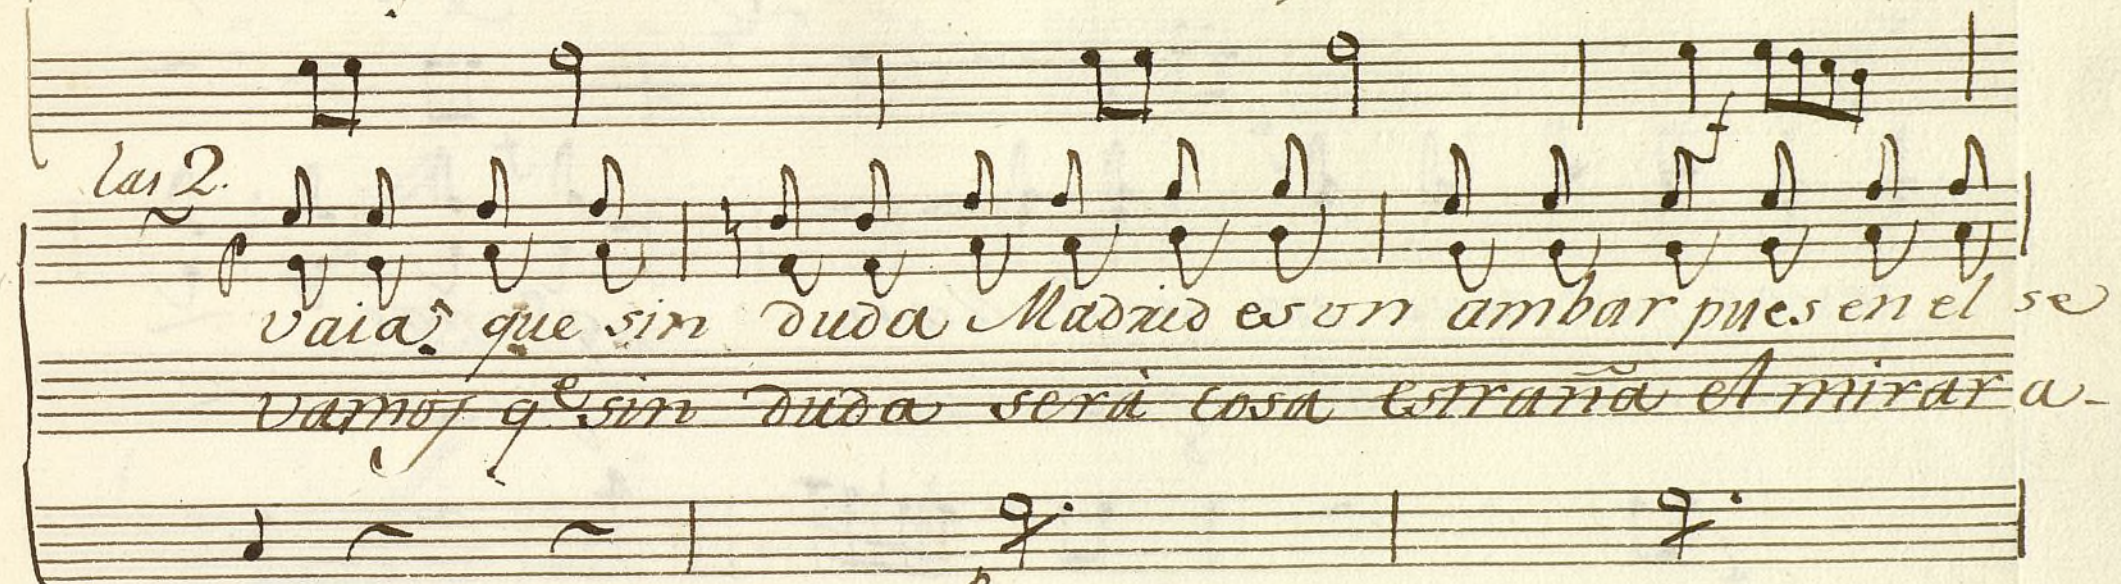 las 2.
f
p
vaia, que sin duda Madrid es vn ambar pues en el se
vamos qe sin duda será cosa estraña el mirar a-
p